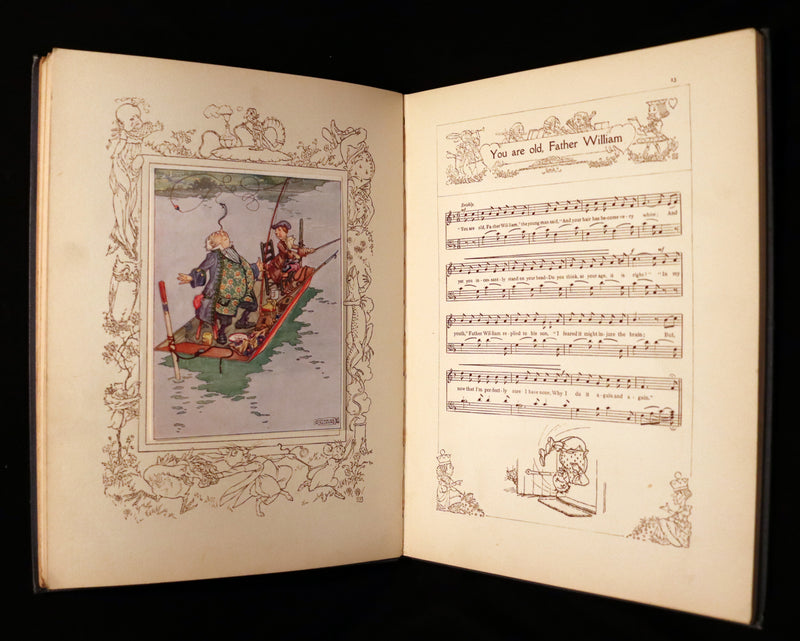 13
You are old, Father William
Briskly.
mf
"You are old, Fa-ther Wil-liam," the young man said, "And your hair has be-come ve-ry white; And
f mf
yet you in-ces-sant-ly stand on your head—Do you think, at your age, it is right?" "In my
youth," Father Wil-liam re-plied to his son, "I feared it might in-jure the brain; But,
now that I'm per-fect-ly sure I have none, Why I do it a-gain and a-gain."